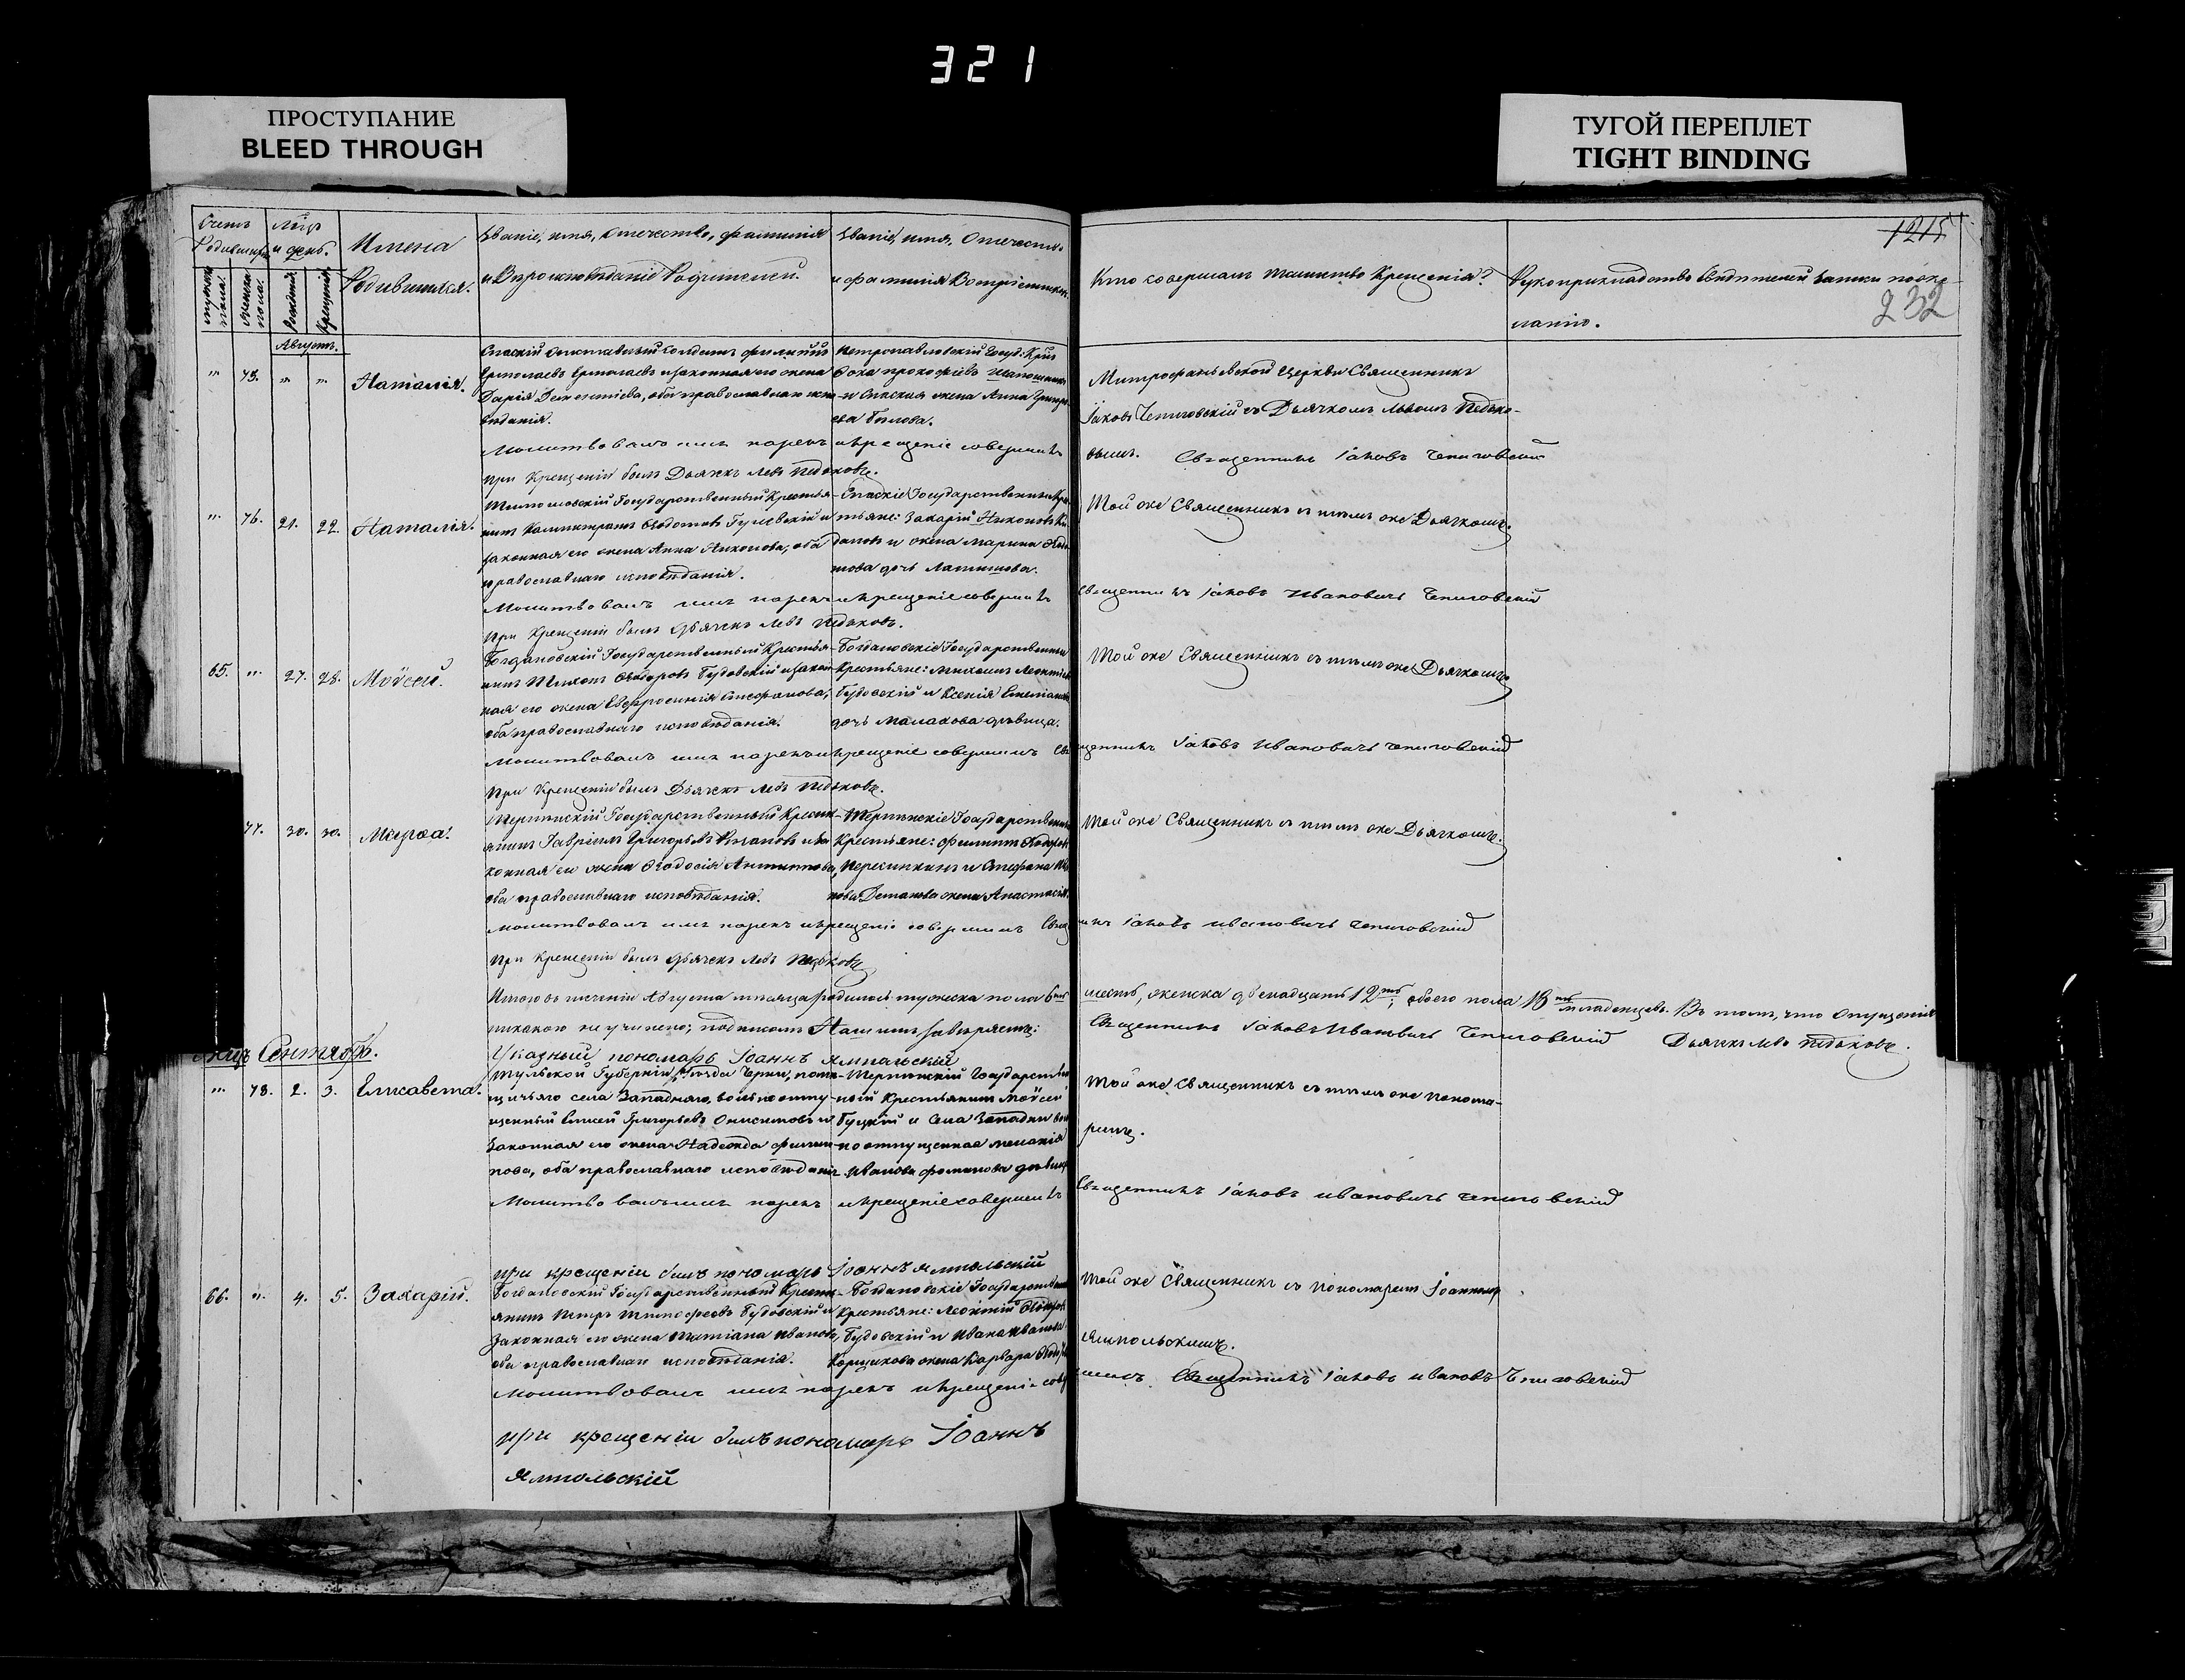 321
ПРОСТУПАНИЕ
BLEED THROUGH
ТУГОЙ ПЕРЕПЛЕТ
TIGHT BINDING
1215
232
Счетъ
Родившихся
Мѣц
и день.
мужска пола.
женска пола.
Рожденія
Крещенія
Имена
Родившихся.
Званіе, имя, отечество, фамилія
и Вѣроисповѣданіе Родителей.
Званіе, имя, Отечество
и фамилія Воспріемниковъ
Кто совершалъ таинство Крещенія?
Рукоприкладство свидѣтелей записи по же-
ланію.
Августъ.
" 75. " " Наталія.
Спаскій отставный солдатъ Филиппъ
Ермолаевъ Ермолаевъ и законная его жена
Дарія Дементіева, оба православнаго испо-
вѣданія.
Петропавловскій Госуд: Кр:
Фока Прокофіевъ
и Спаская жена Анна Григорь-
ева Бѣлова.
Митрофаньевской Церкви Священникъ
Іаковъ Чепиговскій съ Дьячкомъ Львомъ Педько-
вымъ.
Молитвовалъ имя нарекъ и крещеніе совершилъ
Священникъ Іаковъ Чепиговскій
При Крещеніи былъ Дьячекъ Левъ Педьковъ.
" 76. 21. 22. Наталія.
Государственный Крестья-
нинъ Калистратъ Федотовъ Гулевскій и
законная его жена Анна Никонова, оба
православнаго исповѣданія.
Спаскіе Государственные Кре-
стьяне: Захарій Никоновъ
и жена Марина
това дочь Латышова.
Той же Священникъ съ тѣмъ же Дьячкомъ.
Молитвовалъ имя нарекъ и крещеніе совершилъ
Священникъ Іаковъ Ивановичъ Чепиговскій
При Крещеніи былъ Дьячекъ Левъ Педьковъ.
65. " 27. 28. Моѵсей.
Богдановскій Государственный Крестья-
нинъ Тихонъ Феодоровъ Будовскій и закон-
ная его жена Евфросинія Стефанова,
оба православнаго исповѣданія.
Богдановскіе Государственные
Крестьяне: Михаилъ Леонтіевъ
Будовскій и Ксенія Емеліанова
дочь Малахова дѣвица.
Той же Священникъ съ тѣмъ же Дьячкомъ
Молитвовалъ имя нарекъ и крещеніе совершилъ Свя
щенникъ Іаковъ Ивановичъ Чепиговскій
При Крещеніи былъ Дьячекъ Левъ Педьковъ.
77. 30. 30. Марѳа.
Терпѣнскій Государственный Крести-
янинъ Гавріилъ Григорьевъ и за
конная его жена Феодосія Антипова,
оба православнаго исповѣданія.
Терпѣнскіе Государственные
Крестьяне: Филиппъ Федоровъ
Пересыпкинъ и Стефана
нова жена Анастасія.
Той же Священникъ съ тѣмъ же Дьячкомъ.
Молитвовалъ имя нарекъ и крещеніе совершилъ Свящ
икъ Іаковъ Ивановичъ Чепиговскій
При Крещеніи былъ Дьячекъ Левъ Педьковъ
Итого въ теченіи Августа мѣсяца родилось мужеска пола 6ть
шесть, женска двенадцать 12ть, обоего пола 18ть младенцевъ. Въ томъ, что опущенія
никакого не учинено; подписомъ Нашимъ заверяемъ:
Священникъ Іаковъ Ивановичъ Чепиговскій Дьячекъ Левъ Педьковъ.
Указный пономарь Іоаннъ Ямпольскій
Мѣсяцъ Сентябрь.
" 78. 2. 3. Елисавета.
Тульской Губерніи, Уѣзда Черни, помѣ-
щичьяго села Западнаго, вольноотпу-
щенный Елисей Григорьевъ Онисимовъ и
Законная его жена Надежда Филип-
пова, оба православнаго исповѣданія
Терпѣнскій Государствен
ный Крестьянинъ Моѵсей
Буцкій и Села Западни воль
ноотпущенная Меланія
Иванова Фомина дѣвица
Той же Священникъ съ тѣмъ же понома-
ремъ.
Молитвовалъ имя нарекъ и крещеніе совершилъ
Священникъ Іаковъ Ивановичъ Чепиговскій
при крещеніи былъ пономарь Іоаннъ Ямпольскій
66. " 4. 5. Захарій.
Богдановскій Государственный Крести-
янинъ Петръ Тимофеевъ Будовскій и
Законная его жена Татіана Иванова,
оба православнаго исповѣданія.
Богдановскіе Государственные
Крестьяне: Леонтій Федоровъ
Будовскій и Ивана Иванова
Корщикова жена Варвара
Той же Священникъ съ Пономаремъ Іоанномъ
Ямпольскимъ.
Молитвовалъ имя нарекъ и крещеніе совер
шилъ Священникъ Іаковъ Ивановъ Чепиговскій
при крещеніи былъ пономарь Іоаннъ
Ямпольскій